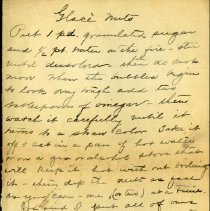 Glacé Nuts
Put 1 pd. granulated sugar
and 1/2 pt. water on the fire - stir
until dissolved - then do not stir
more. When the bubbles begin
to look very tough add two
tablespoons of vinegar - then
watch it carefully until it
turns to a straw color. Take it
off & set in a pan of hot water
or on a stove that
will keep it hot with out boiling
it - then dip the nuts as fast
as you can - one (or two) at a time.
I put all of ours